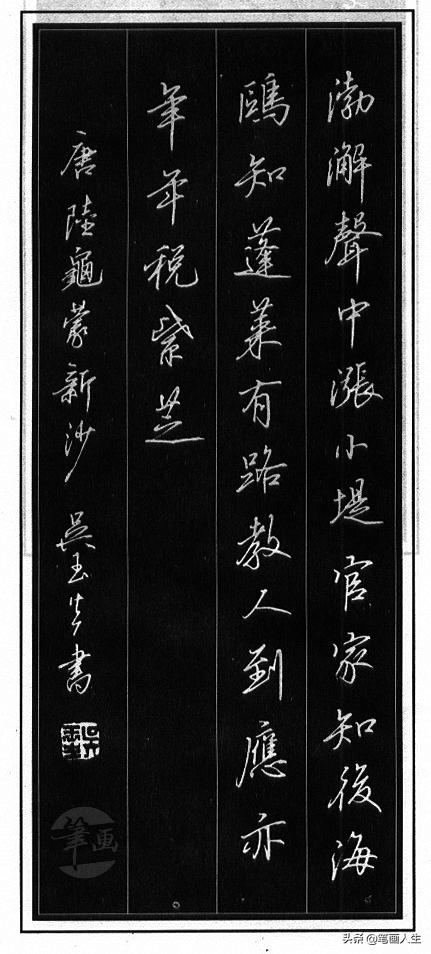 渤澥聲中漲小堤官家知後海
鷗知蓬萊有路教人到應亦
年年税紫芝
唐陸龜蒙新沙 吳玉生書
筆画
头条 @笔画人生